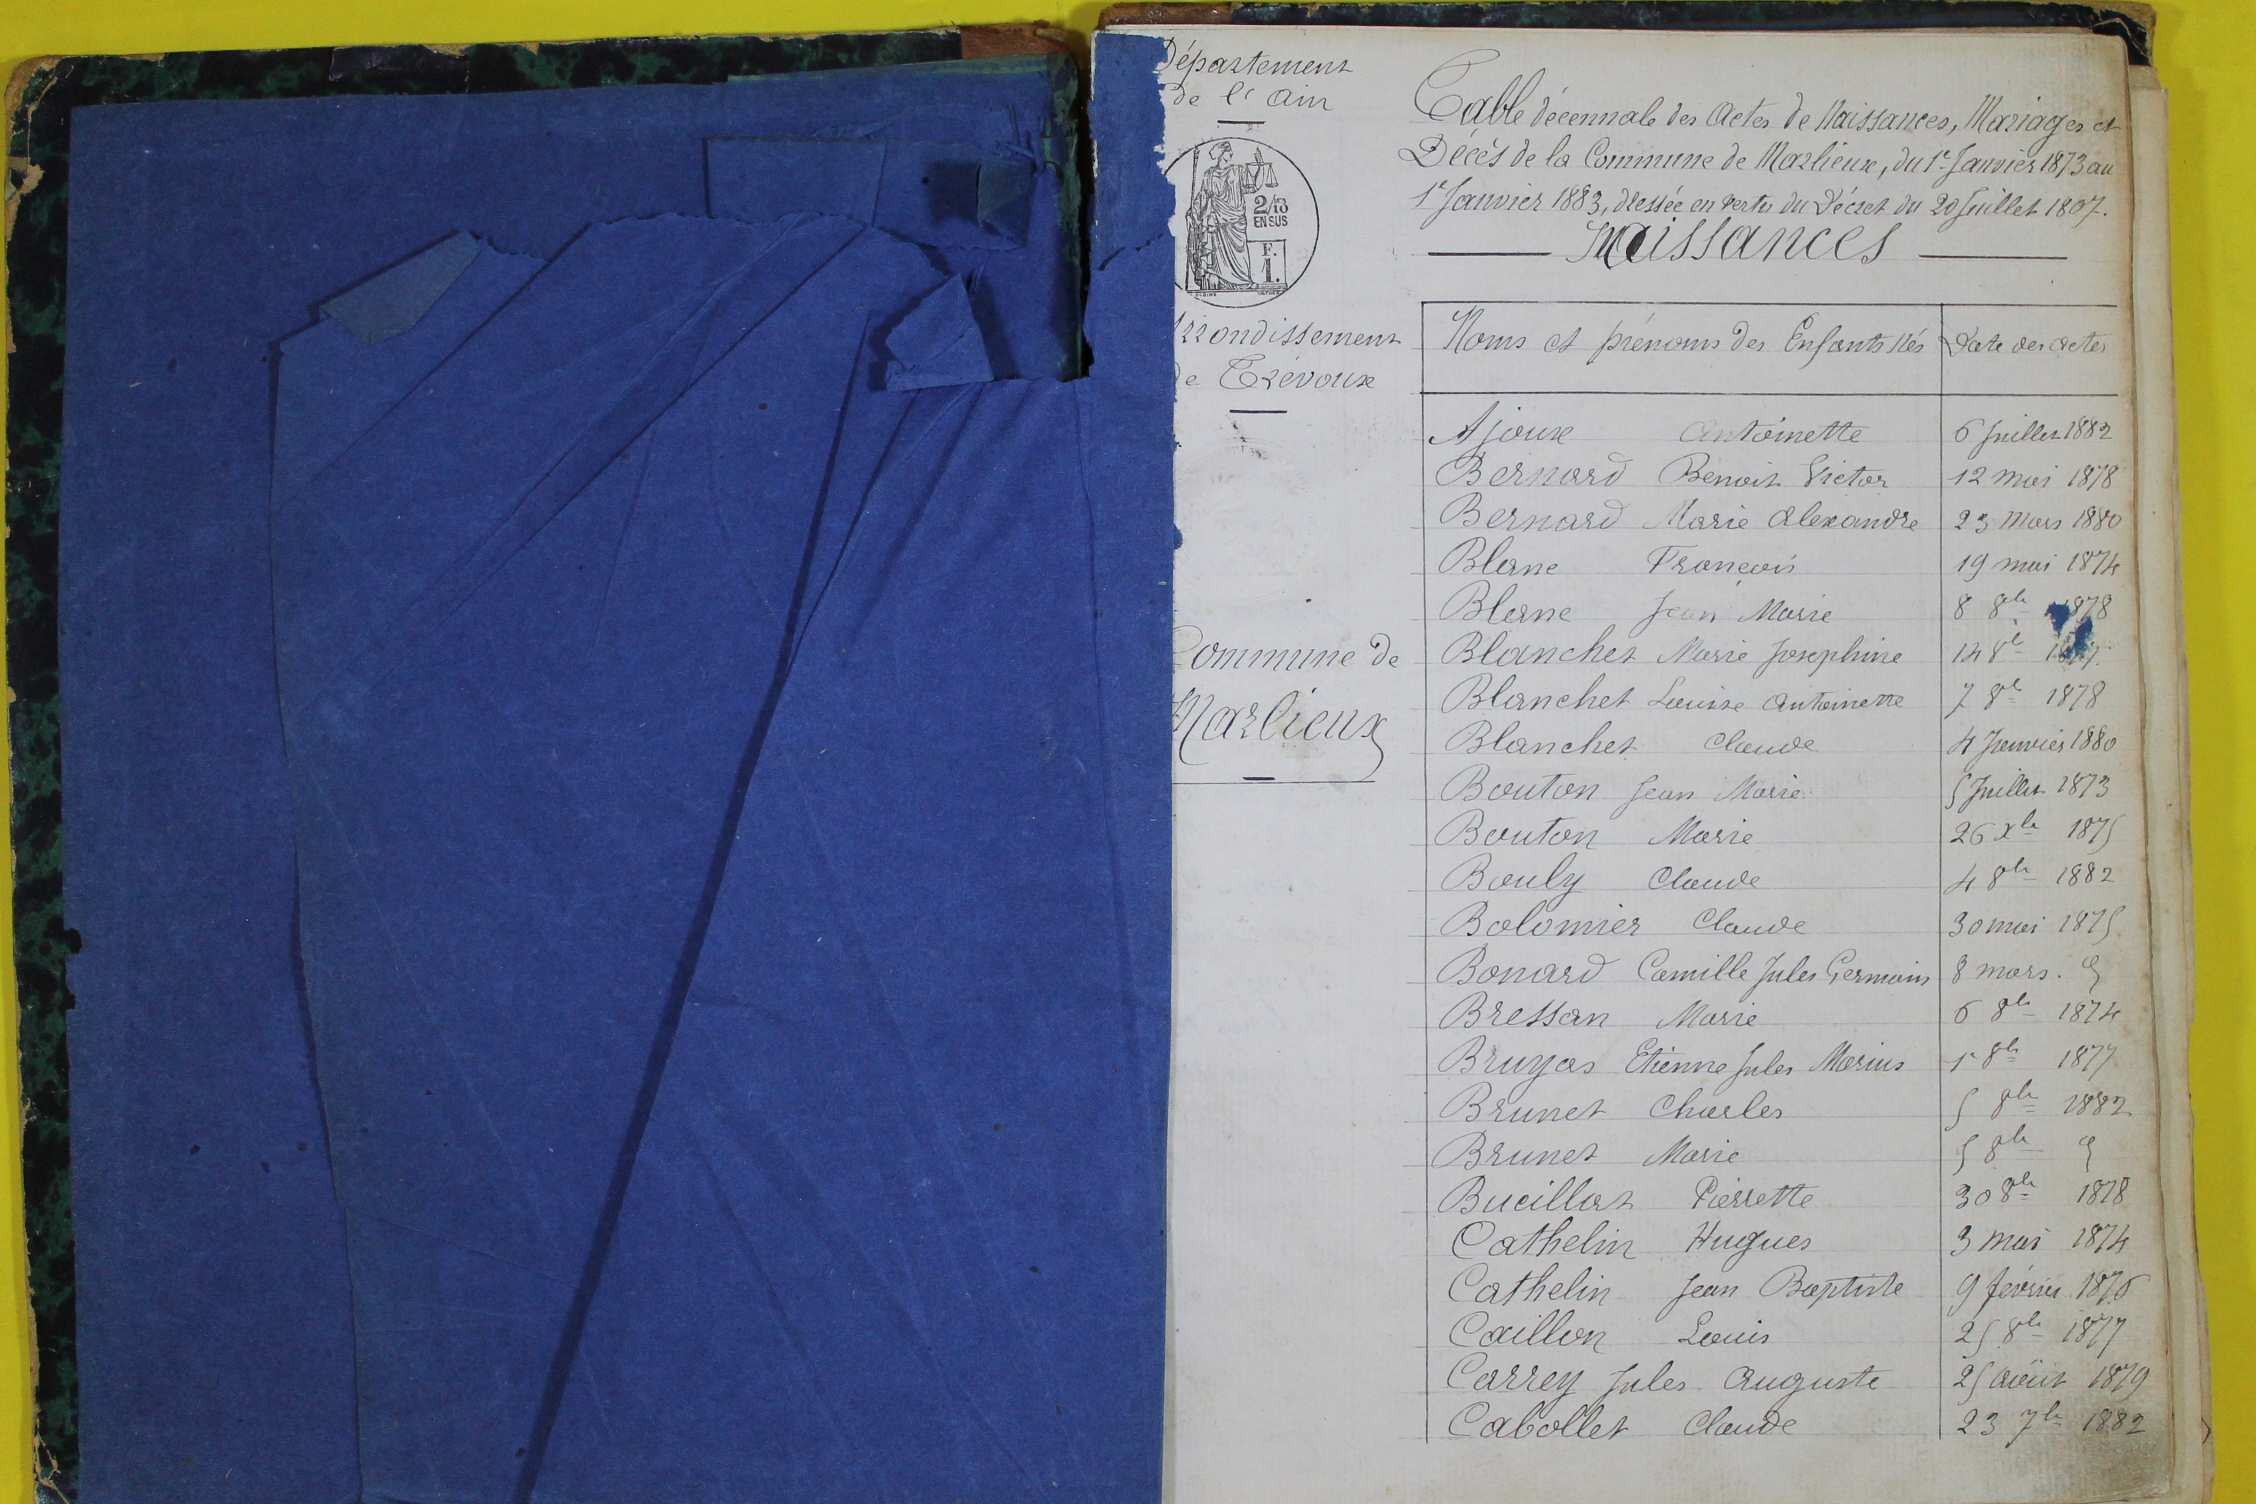 Département
de l'Ain
2/10
EN SUS
F.
1.
Arrondissement
de Trévoux
Commune de
Marlieux
Table décennale des Actes de Naissances, Mariages et
Décès de la Commune de Marlieux, du 1er Janvier 1873 au
1er Janvier 1883, dressée en vertu du Décret du 20 Juillet 1807.
Naissances
Noms et prénoms des Enfants Nés Date des actes
Ajoux Antoinette 6 Juillet 1882
Bernard Benoit Victor 12 mai 1878
Bernard Marie Alexandre 23 Mars 1880
Blanc François 19 mai 1874
Blanc Jean Marie 8 8bre 1878
Blanchet Marie Josephine 14 8bre
Blanchet Louise Antoinette 7 8bre 1878
Blanchet Claude 4 Janvier 1880
Bouton Jean Marie 5 Juillet 1873
Bouton Marie 26 Xbre 1875
Bouly Claude 4 8bre 1882
Bolomier Claude 30 mai 1875
Bonard Camille Jules Germain 8 mars.
Bressan Marie 6 8bre 1874
Bruyas Etienne Jules Marius 1er 8bre 1877
Brunet Charles 5 8bre 1882
Brunet Marie 5 8bre
Bucillat Pierrette 30 8bre 1878
Cathelin Hugues 3 mai 1874
Cathelin Jean Baptiste 9 février 1876
Caillon Louis 25 8bre 1877
Carrey Jules Auguste 25 août 1879
Cabollet Claude 23 7bre 1882